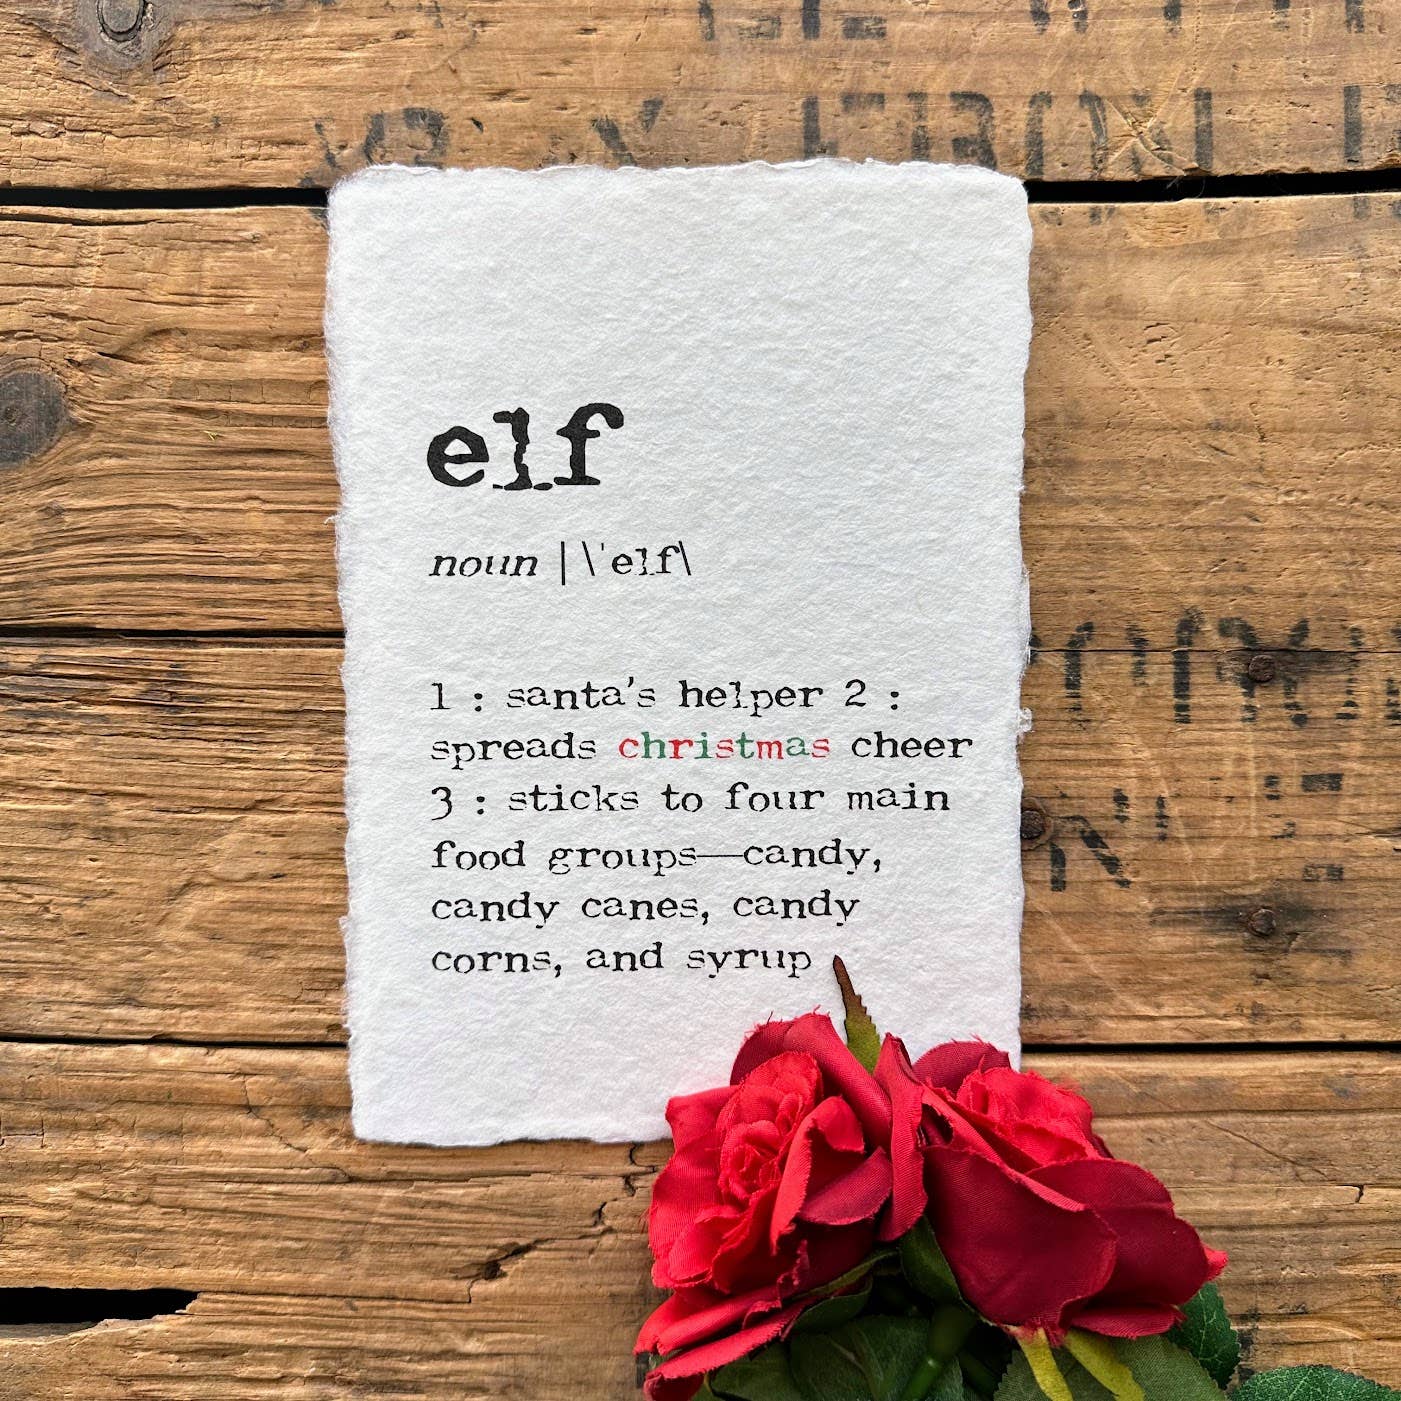 elf
noun | \'elf\
1 : santa's helper 2 :
spreads christmas cheer
3 : sticks to four main
food groups—candy,
candy canes, candy
corns, and syrup